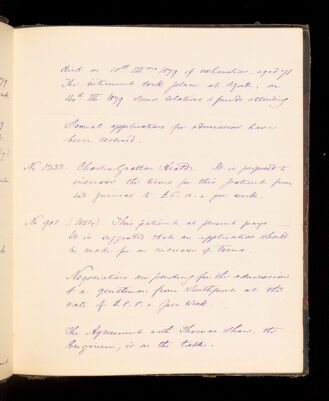 died on 10th III mo 1879 of exhaustion, aged 71
The interment took place at York, on
14th III 1879 some relatives & friends attending
Several applications for admission have
been received.
No 1533. Charles Grattan Heald. It is proposed to
increase the terms for this patient from
guineas to £5. 10. 0 per week.
No 901 (1854) This patient at present pays
It is suggested that an application should
be made for an increase of terms.
Negotiations are pending for the admission
of a gentleman from Southport at the
rate of £8. 8. 0 per week.
The Agreement with Thomas Shaw, the
Engineer, is on the table.